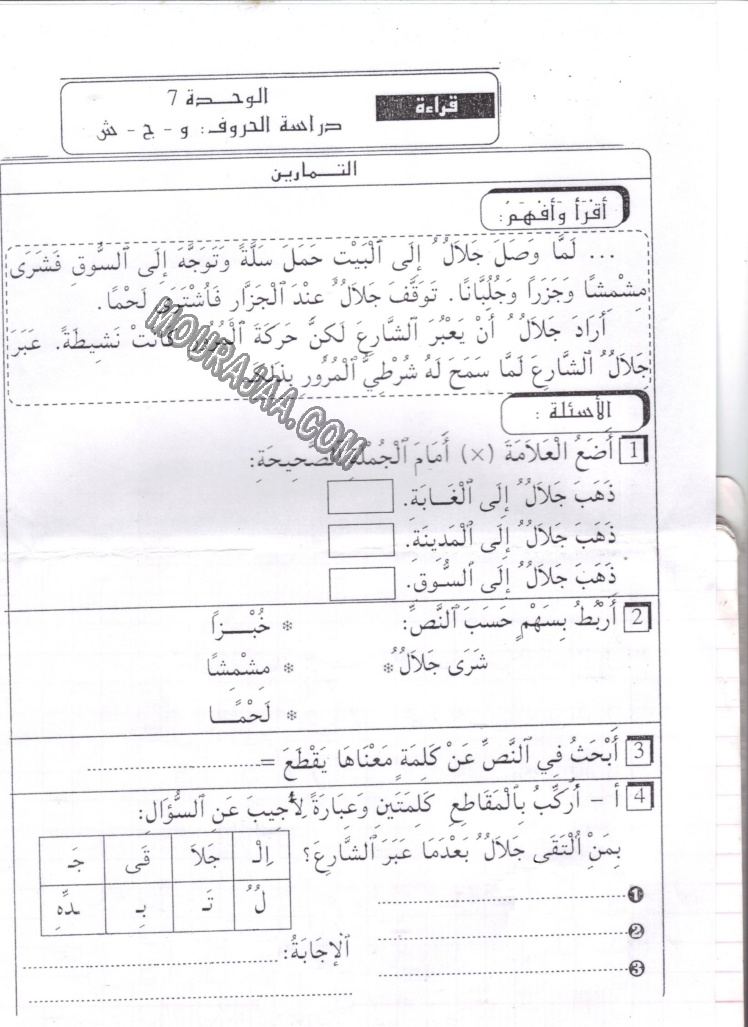 قراءة
الوحدة 7
دراسة الحروف: و - ج - ش
التمارين
أَقْرَأُ وَأَفْهَمُ:
... لَمَّا وَصَلَ جَلاَلٌ إِلَى ٱلْبَيْتِ حَمَلَ سَلَّةً وَتَوَجَّهَ إِلَى ٱلسُّوقِ فَشَرَى
مِشْمِشًا وَجَزَرًا وَجُلُبَّانًا. تَوَقَّفَ جَلاَلٌ عِنْدَ ٱلْجَزَّارِ فَٱشْتَرَى لَحْمًا.
أَرَادَ جَلاَلٌ أَنْ يَعْبُرَ ٱلشَّارِعَ لَكِنَّ حَرَكَةَ ٱلْمُرُورِ كَانَتْ نَشِيطَةً. عَبَرَ
جَلاَلٌ ٱلشَّارِعَ لَمَّا سَمَحَ لَهُ شُرْطِيُّ ٱلْمُرُورِ بِذَلِكَ.
MOURAJAA.COM
الأسئلة :
1 أَضَعُ الْعَلاَمَةَ (×) أَمَامَ ٱلْجُمْلَةِ ٱلصَّحِيحَةِ:
ذَهَبَ جَلاَلٌ إِلَى ٱلْغَابَةِ.
ذَهَبَ جَلاَلٌ إِلَى ٱلْمَدِينَةِ.
ذَهَبَ جَلاَلٌ إِلَى ٱلسُّوقِ.
2 أَرْبُطُ بِسَهْمٍ حَسَبَ ٱلنَّصِّ:
* خُبْزًا
شَرَى جَلاَلٌ * * مِشْمِشًا
* لَحْمًا
3 أَبْحَثُ فِي ٱلنَّصِّ عَنْ كَلِمَةٍ مَعْنَاهَا يَقْطَعَ = ....................
4 أ - أُرَكِّبُ بِٱلْمَقَاطِعِ كَلِمَتَيْنِ وَعِبَارَةً لِأُجِيبَ عَنِ ٱلسُّؤَالِ:
بِمَنْ ٱلْتَقَى جَلاَلٌ بَعْدَمَا عَبَرَ ٱلشَّارِعَ؟
اِلْـ جَلاَ قَى جَـ
لٌ تَـ بِـ ـدِّهِ
1 ....................
2 ....................
3 ....................
ٱلْإِجَابَةُ: ....................
....................